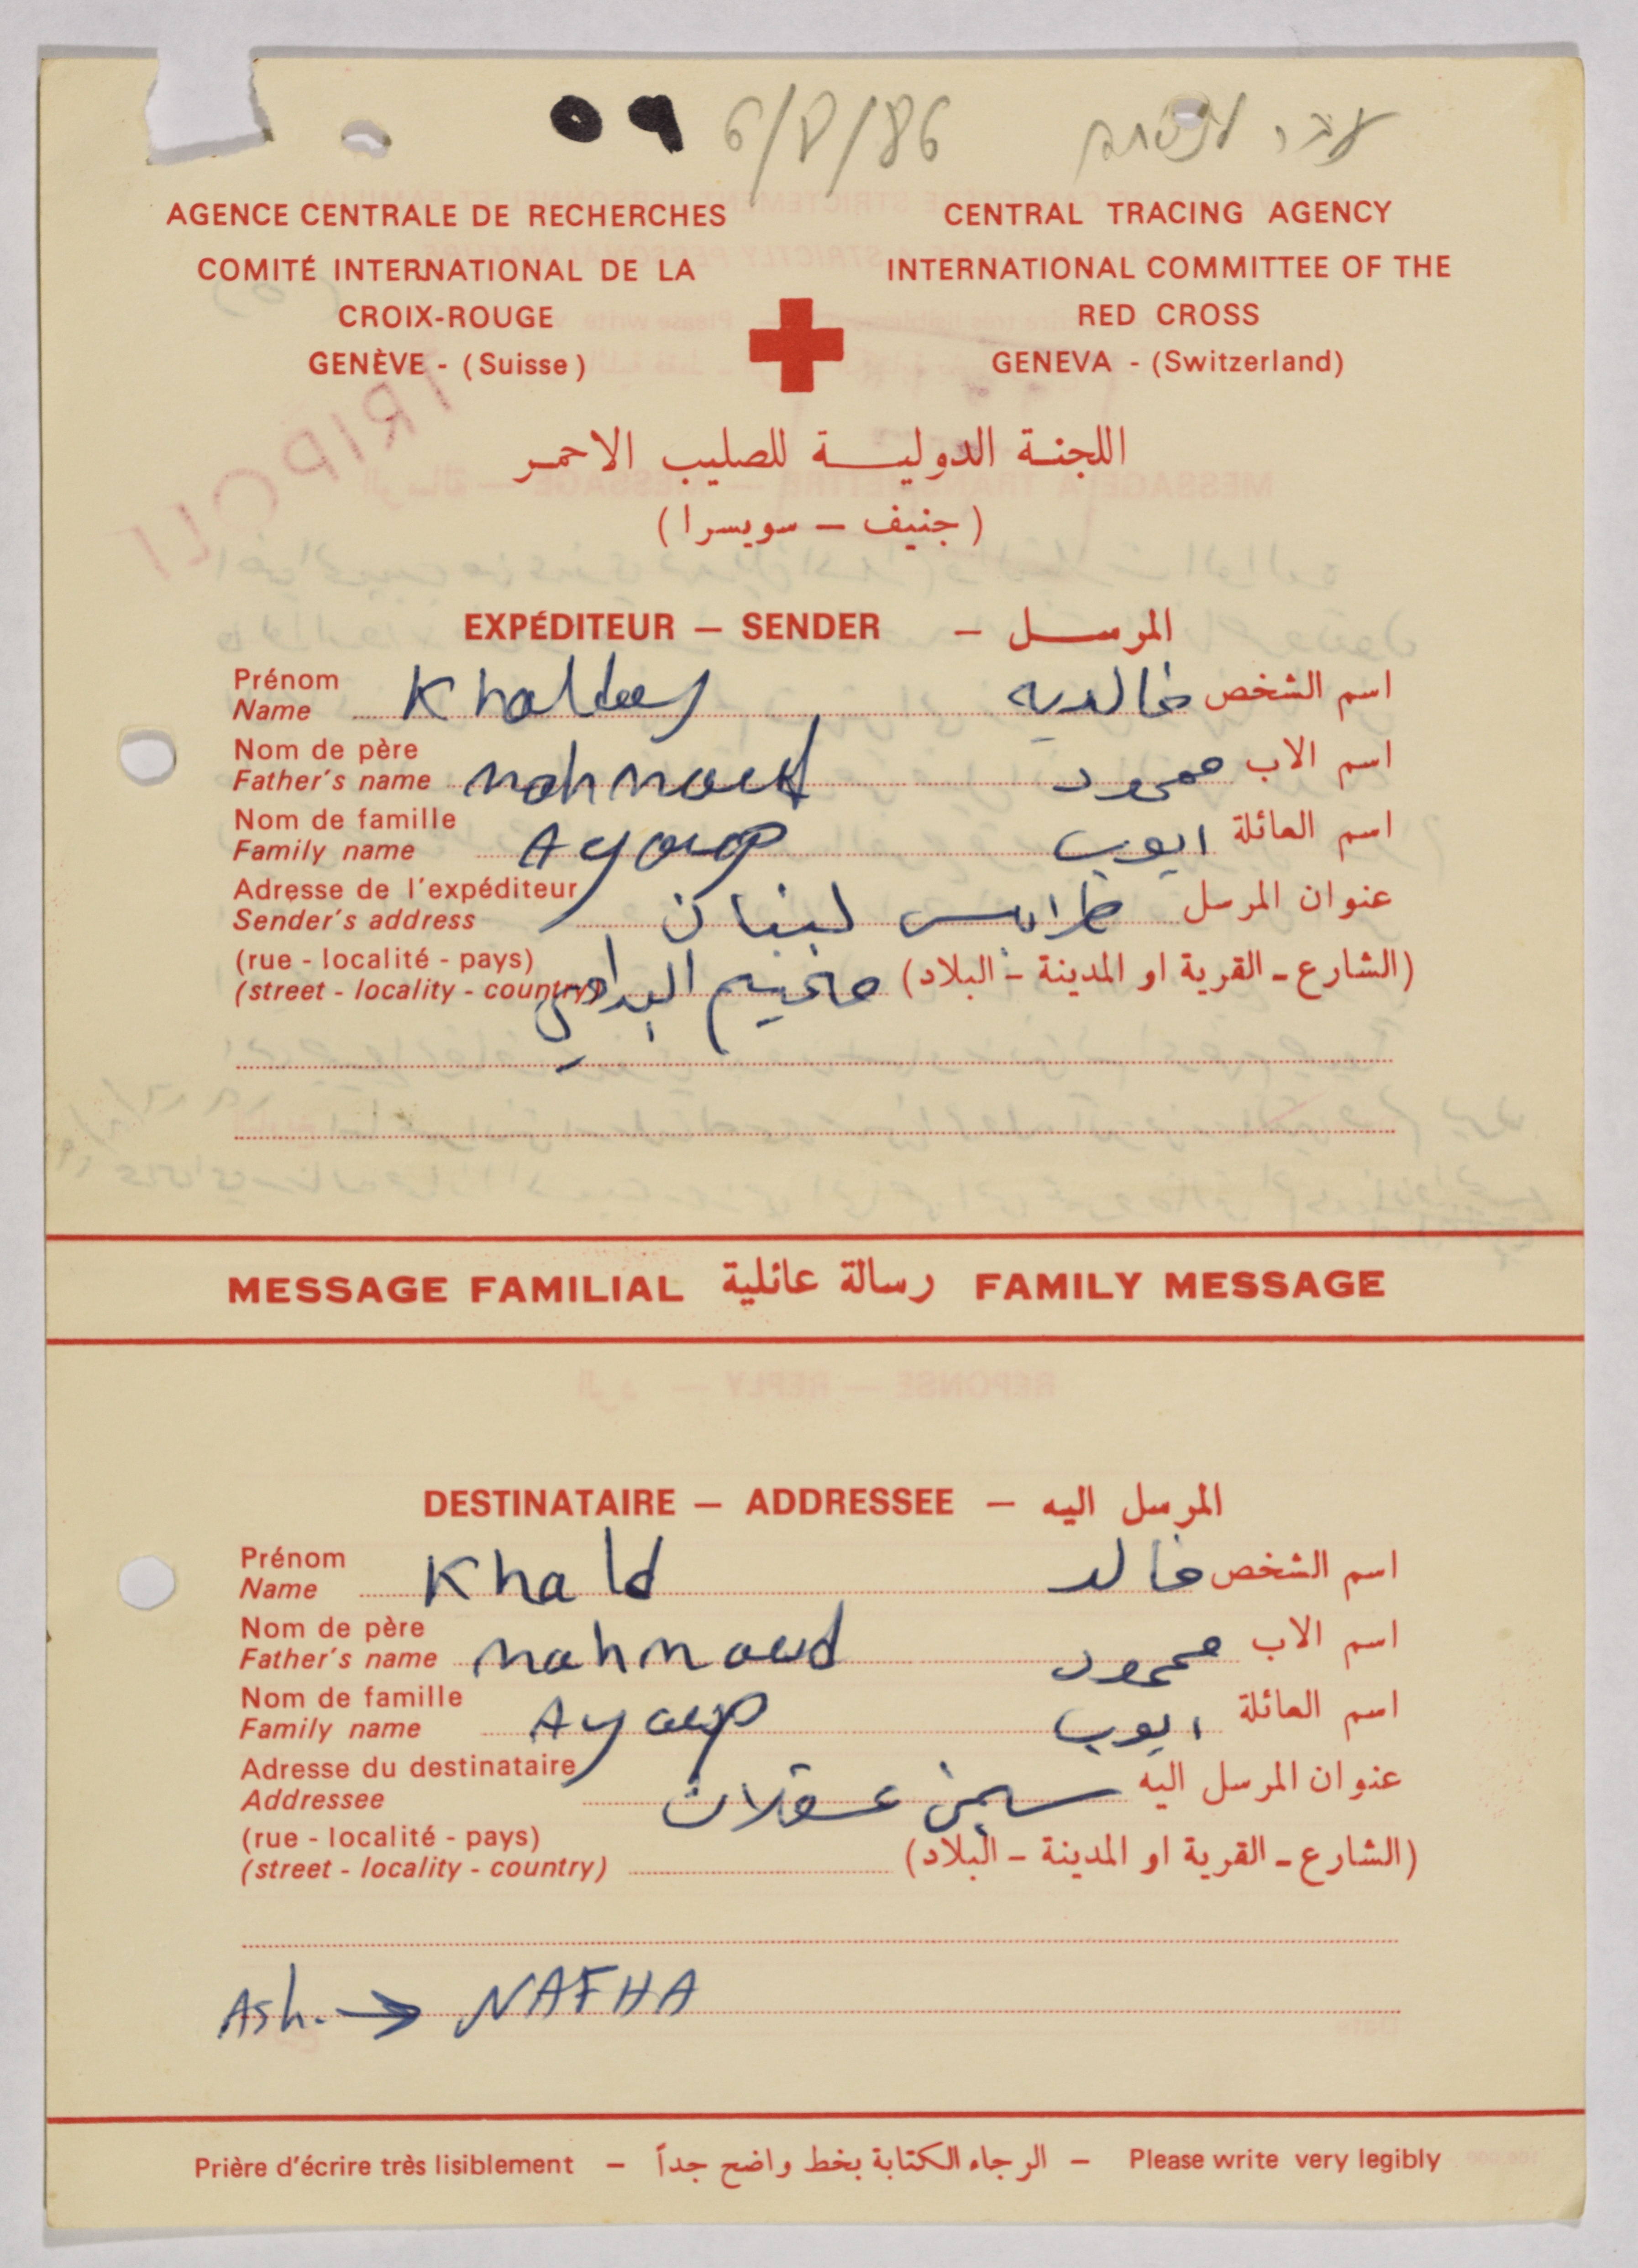 59 6/8/86
AGENCE CENTRALE DE RECHERCHES CENTRAL TRACING AGENCY
COMITÉ INTERNATIONAL DE LA INTERNATIONAL COMMITTEE OF THE
CROIX-ROUGE RED CROSS
GENÈVE - (Suisse) GENEVA - (Switzerland)
TRIPOLI
اللجنة الدولية للصليب الاحمر
(جنيف – سويسرا)
EXPÉDITEUR – SENDER – المرسل
Prénom
Name خالديه اسم الشخص
Nom de père
Father's name mahmoud محمود اسم الاب
Nom de famille
Family name Ayoup ايوب اسم العائلة
Adresse de l'expéditeur
Sender's address طرابلس لبنان عنوان المرسل
(rue - localité - pays)
(street - locality - country) مخيم البداوي (الشارع - القرية او المدينة - البلاد)
MESSAGE FAMILIAL رسالة عائلية FAMILY MESSAGE
DESTINATAIRE – ADDRESSEE – المرسل اليه
Prénom
Name Khald خالد اسم الشخص
Nom de père
Father's name mahmoud محمود اسم الاب
Nom de famille
Family name Ayoup ايوب اسم العائلة
Adresse du destinataire
Addressee سجن عسقلان عنوان المرسل اليه
(rue - localité - pays)
(street - locality - country) (الشارع - القرية او المدينة - البلاد)
Ash. → NAFHA
Prière d'écrire très lisiblement – الرجاء الكتابة بخط واضح جداً – Please write very legibly